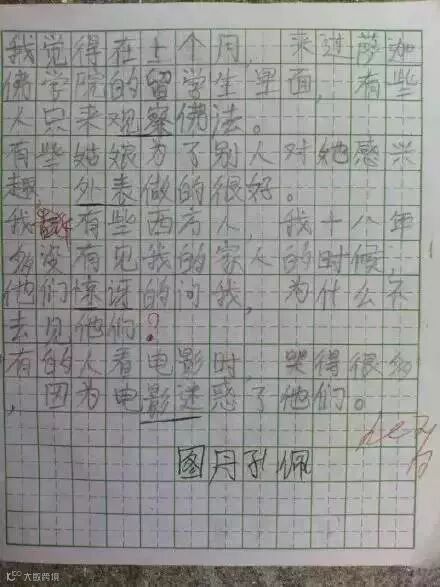 我觉得在上个月，来过萨迦
佛学院的留学生里面，有些
人只来观察佛法。
有些姑娘为了别人对她感兴
趣，外表做的很好。
我 有些西方人，我十八年
多没有见我的家人的时候，
他们惊讶的问我，为什么不
去见他们？
有的人看电影时，哭得很多
，因为电影迷惑了他们。
图丹孔佩
大数跨境